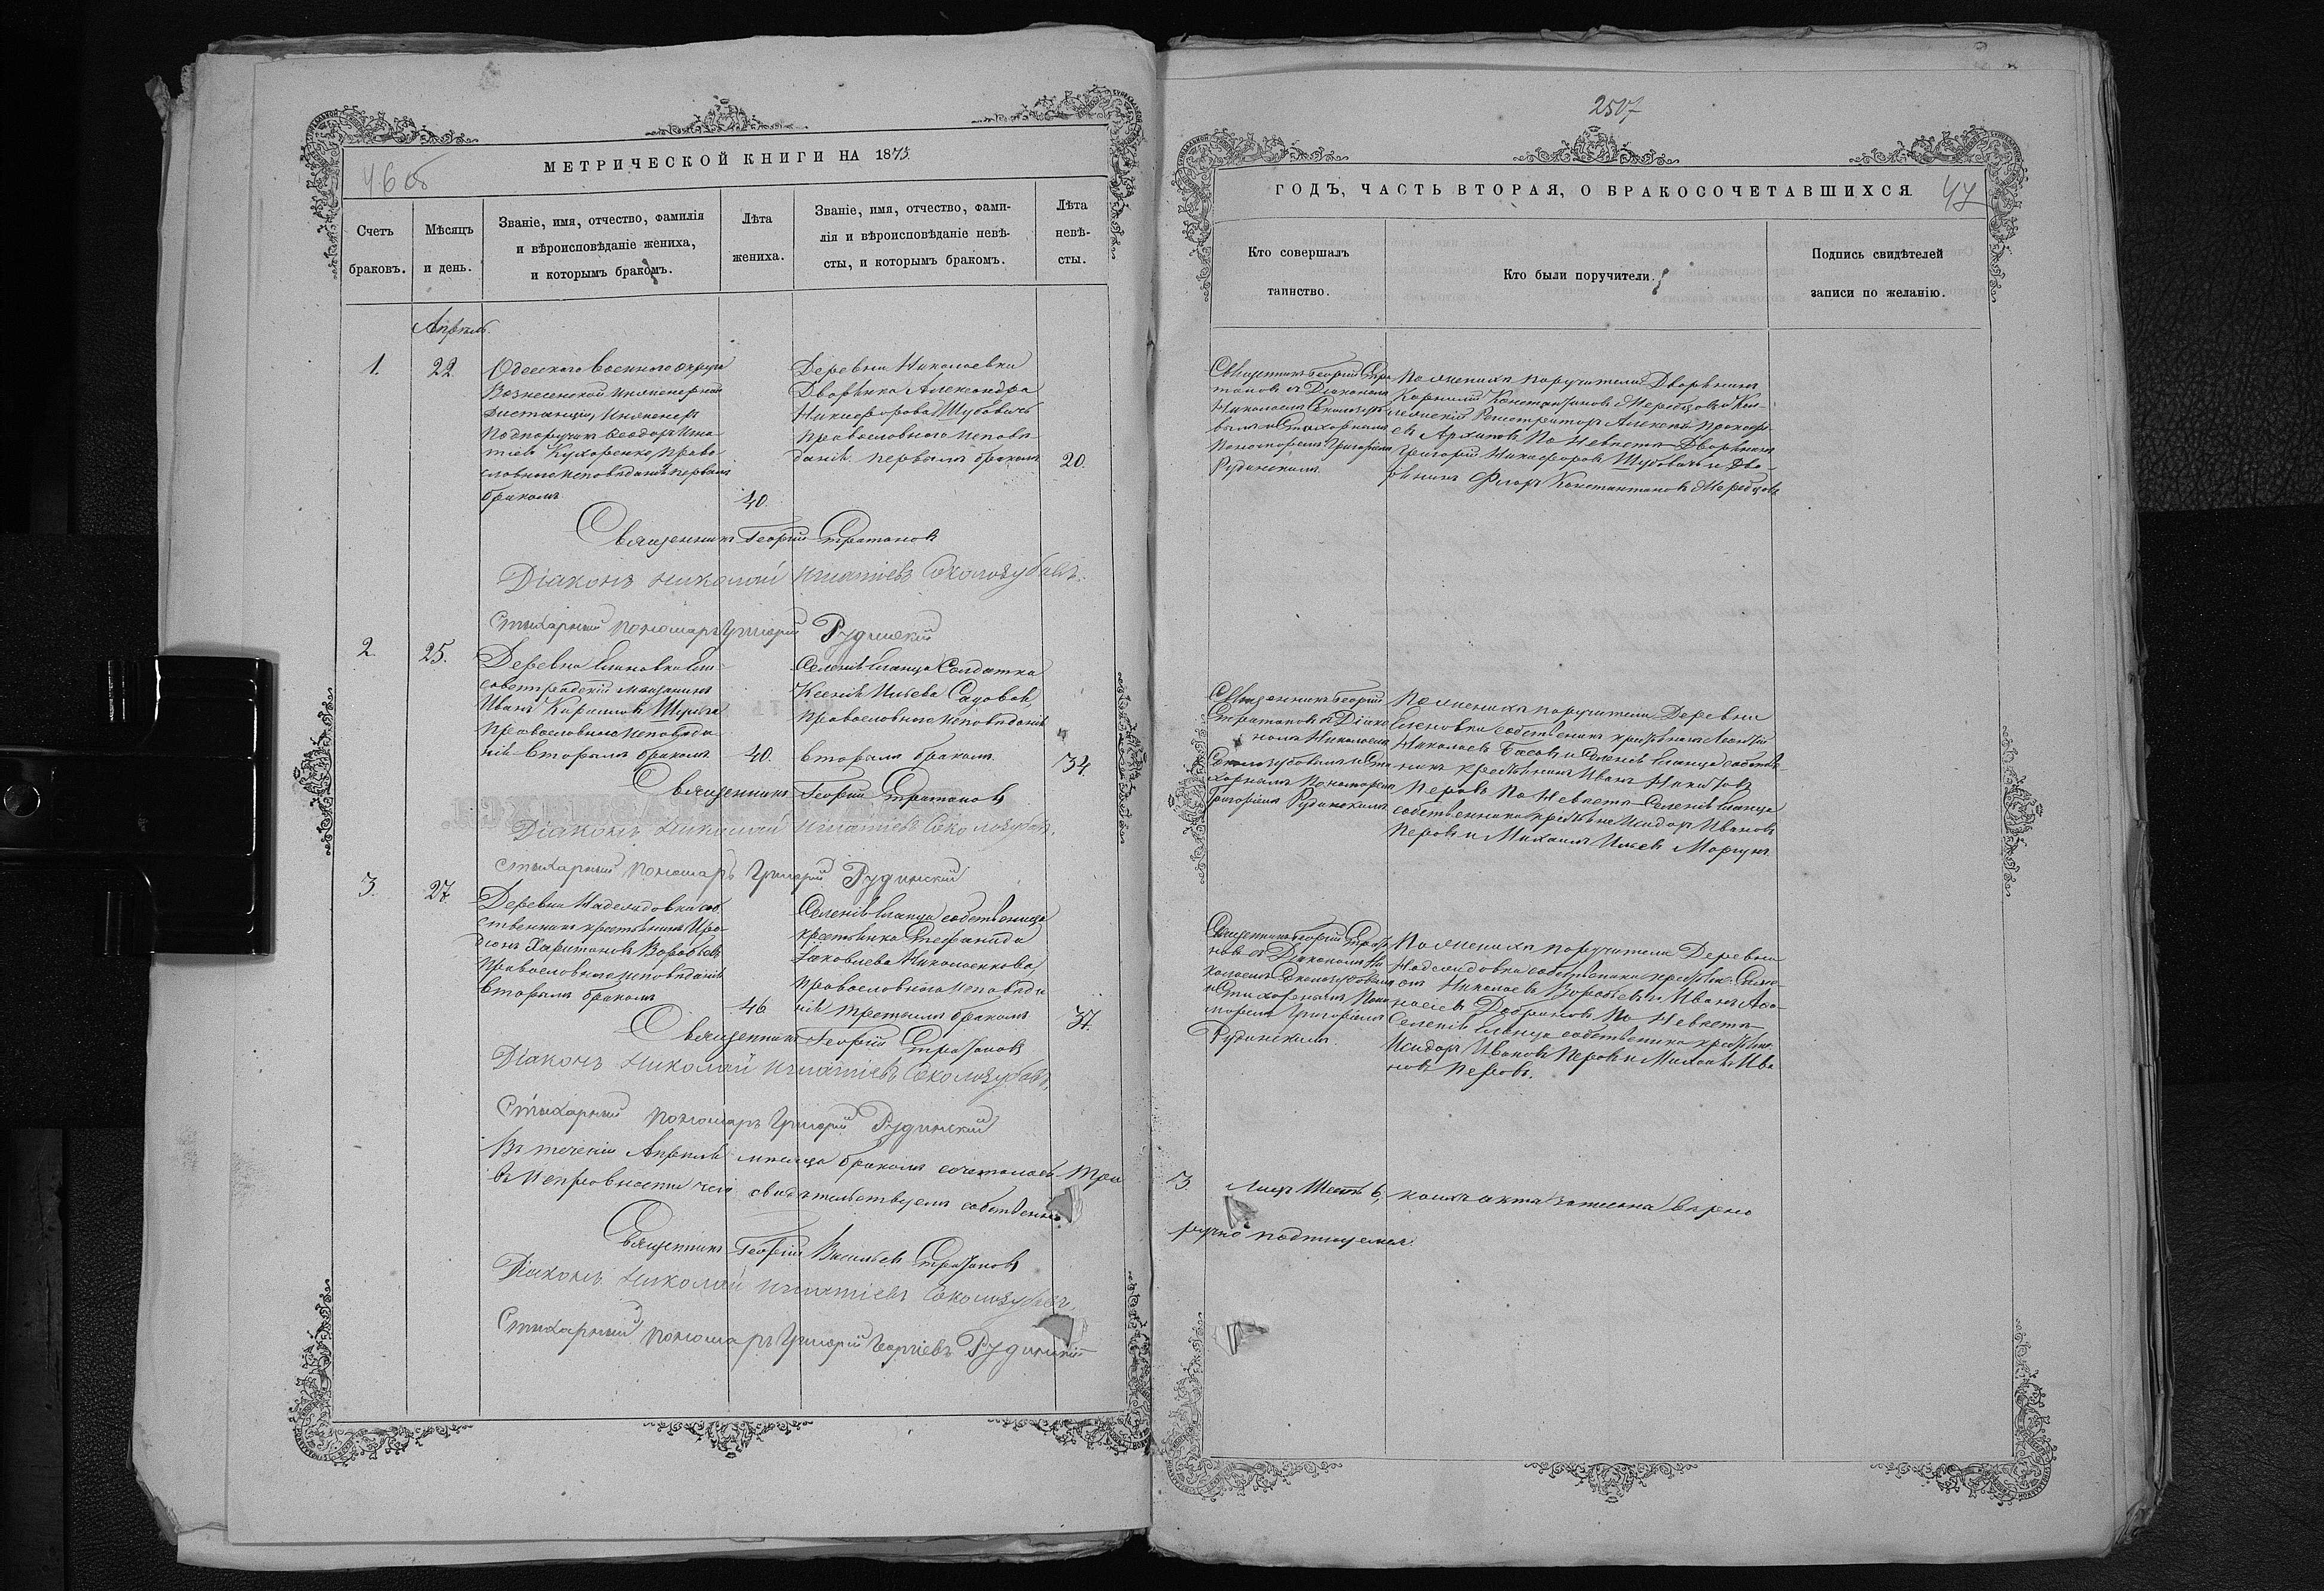 2507
МЕТРИЧЕСКОЙ КНИГИ НА 1875.
46 об
Счетъ браковъ.
Мѣсяцъ и день.
Званіе, имя, отчество, фамилія
и вѣроисповѣданіе жениха,
и которымъ бракомъ.
Лѣта жениха.
Званіе, имя, отчество, фами-
лія и вѣроисповѣданіе невѣ-
сты, и которымъ бракомъ.
Лѣта невѣ-
сты.
Апрѣль.
1.
22.
Одесскаго военнаго округа
Вознесенской инженерной
дистанціи, Инженеръ
Подпоручикъ Ѳеодоръ Игна
тіевъ Кухаренко, право
славнаго исповѣданія первымъ
бракомъ
40.
Деревни Николаевки
Дворянка Александра
Никифорова Шубовичъ
православнаго исповѣ
данія первымъ бракомъ
20.
Священникъ Георгій Стратоновъ
Діаконъ Николай Игнатіевъ Соколозубовъ.
Стихарный пономарь Григорій Рудинскій
2.
25.
Деревни Елановки Ели-
саветградскій мѣщанинъ
Иванъ Кириловъ
православнаго исповѣда
нія вторымъ бракомъ
40.
Селенія Еланца Солдатка
Ксенія Ильева Садовая,
православнаго исповѣданія
вторымъ бракомъ
34.
Священникъ Георгій Стратоновъ
Діаконъ Николай Игнатіевъ Соколозубовъ.
Стихарный пономарь Григорій Рудинскій
3.
27.
Деревни Наделидовки соб
ственникъ крестьянинъ Иро-
діонъ Харитоновъ Воробьевъ
православнаго исповѣданія
вторымъ бракомъ
46
Селенія Еланца собственница
крестьянка Стефанида
Іаковлева Николаенкова,
православнаго исповѣда
нія третьимъ бракомъ
37.
Священникъ Георгій Стратоновъ
Діаконъ Николай Игнатіевъ Соколозубовъ.
Стихарный пономарь Григорій Рудинскій
Въ теченіи Апрѣля мѣсяца бракомъ сочеталось три
въ исправности чего свидѣтельствуемъ собственно
Священникъ Георгій Васильевъ Стратоновъ
Діаконъ Николай Игнатіевъ Соколозубовъ.
Стихарный пономарь Григорій Георгіевъ Рудинскій
ГОДЪ, ЧАСТЬ ВТОРАЯ, О БРАКОСОЧЕТАВШИХСЯ
47
Кто совершалъ
таинство.
Кто были поручители.
Подпись свидѣтелей
записи по желанію.
Священникъ Георгій Стра
тоновъ съ Діакономъ
Николаемъ Соколозубо
вымъ и Стихарнымъ
Пономоремъ Григоріемъ
Рудинскимъ
По женихѣ поручители Дворянинъ
Корнилій Константиновъ и Кол-
лежскій Регистраторъ Алексѣй Прокофі
евъ Архиповъ По Невѣстѣ Дворянинъ
Григорій Никифоровъ Шубовичъ и Дво-
рянинъ Флоръ Константиновъ
Священникъ Георгій
Стратоновъ съ Діако
номъ Николаемъ
Соколозубовымъ и Сти
харнымъ Пономоремъ
Григоріемъ Рудинскимъ
По женихѣ поручители Деревни
Елановки собственникъ крестьянинъ Леонтій
Николаевъ Басовъ и Селенія Еланца собствен
никъ крестьянинъ Иванъ Никитовъ
Перовъ По Невѣстѣ Селенія Еланца
собственники крестьяне Исидоръ Ивановъ
Перовъ и Михаилъ Ильевъ Моргунъ
Священникъ Георгій Страто
новъ съ Діакономъ Ни
колаемъ Соколозубовымъ
и Стихарнымъ Поно
моремъ Григоріемъ
Рудинскимъ.
По женихѣ поручители Деревни
Наделидовки собственники крестьяне Симе
онъ Николаевъ Воробьевъ и Иванъ Аѳа
насіевъ По Невѣстѣ
Селенія Еланца собственники крестьяне
Исидоръ Ивановъ Перовъ и Михаилъ Ива
новъ Перовъ.
3. Лицъ Шесть 6, коихъ акты записаны вѣрно
ручно подписуемся.